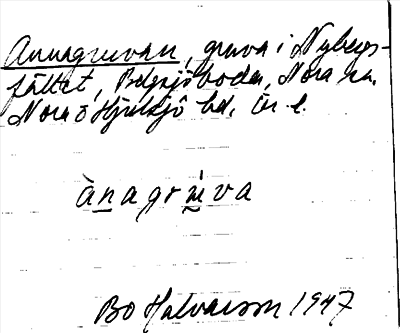 Annagruvan, gruva i Nybergs-
fältet, Pelpsjöboda, Nora sn.
Nora o Hjulsjö bd, Ör l.
ànagrúva
Bo Halvarson 1947